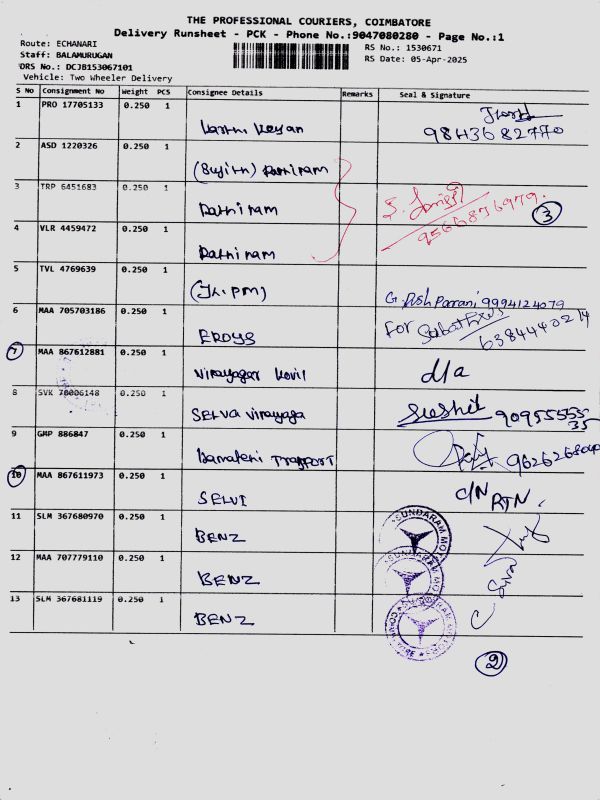 THE PROFESSIONAL COURIERS, COIMBATORE
Delivery Runsheet - PCK - Phone No.:9047080280 - Page No.:1
Route: ECHANARI
RS No.: 1530671
Staff: BALAMURUGAN
RS Date: 05-Apr-2025
DRS No.: DCJB153067101
Vehicle: Two Wheeler Delivery
S No Consignment No Weight PCS Consignee Details Remarks Seal & Signature
1 PRO 17705133 0.250 1
2 ASD 1220326 0.250 1 (Sujith) Rathiram
3 TRP 6451683 0.250 1 Rathiram
9566876979. 3
4 VLR 4459472 0.250 1 Rathiram
5 TVL 4769639 0.250 1 9994124079
6 MAA 705703186 0.250 1 EROYS For
6384440214
7 MAA 867612881 0.250 1 Vinayagar Kovil d/a
8 SVK 70006148 0.250 1 SELVA Vinayaga Sushil
9 GMP 886847 0.250 1
10 MAA 867611973 0.250 1 SELVI C/N RTN.
11 SLM 367680970 0.250 1 BENZ SUNDARAM MOT
12 MAA 707779110 0.250 1 BENZ SUNDARAM
13 SLM 367681119 0.250 1 BENZ
2